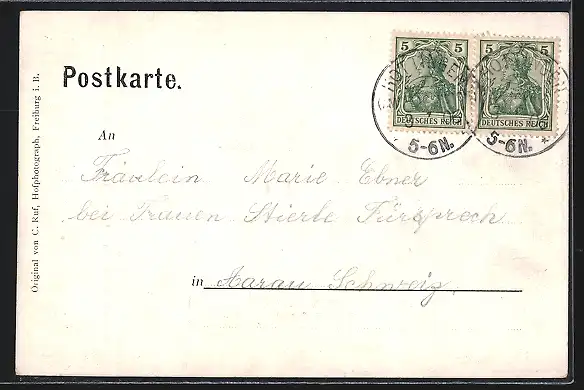 Postkarte.
5 5 5 5
DEUTSCHES REICH DEUTSCHES REICH
5-6N. 5-6N.
An
Fräulein Marie Ebner
bei Frauen Stierle Fürsprech
in Aarau Schweiz.
Original von C. Ruf, Hofphotograph, Freiburg i. B.